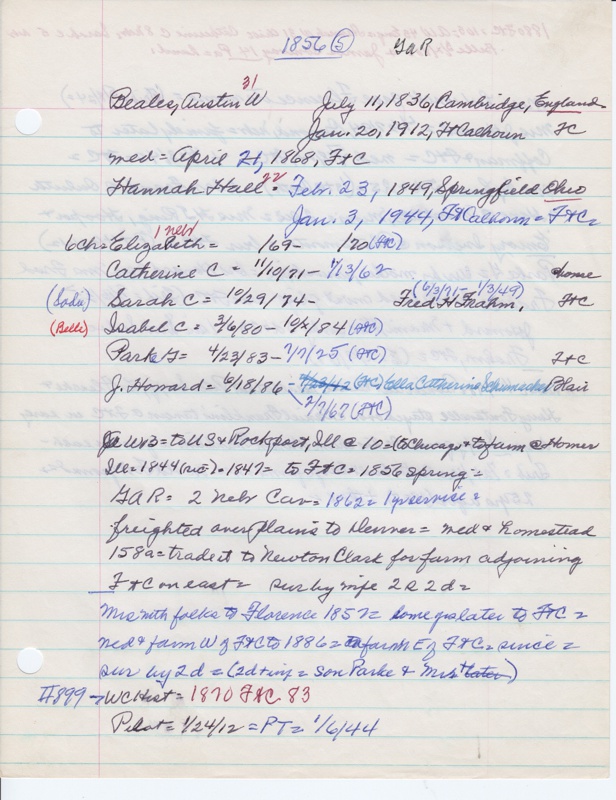 1856 (5) GAR
31
Beales, Austin W July 11, 1836, Cambridge, England
Jan. 20, 1912, Ft Calhoun FC
med = April 21, 1868, FtC
22
Hannah Hall = Febr. 23, 1849, Springfield Ohio
Jan. 3, 1944, Ft Calhoun = FtC =
1 nebr
6ch = Elizabeth = /69 - /70 (FtC)
Catherine C - 11/10/71 - 7/13/62 home
(6/3/71 - 1/3/49)
(Sada) Sarah C = 10/29/74 - Fred H Frahm, FtC
(Belle) Isabel C = 3/6/80 - (FtC)
Parke F = 4/23/83 - 7/7/25 (FtC) FtC
J. Howard = 6/18/86 - (FtC) Ella Catherine Schumacher Blair
2/7/67 (FtC)
to US & Rockport, Ill @ 10 = (to Chicago & to farm @ Homer
Ill = 1844 1847 = to FtC = 1856 spring =
GAR = 2 Nebr Cav = 1862 =
freighted over plains to Denver = med & homestead
158a = traded it to Newton Clark for farm adjoining
FtC on east = sur by wife 2s 2d =
Mrs with folks to Florence 1857 = later to FtC =
med & farm W of FtC to 1886 = to farm E of FtC = since =
sur by 2d = (2d & = son Parke & Mrs )
#899 - WC Hist = 1870 FtC 83
Pilot = 1/24/12 = PT = 1/6/44